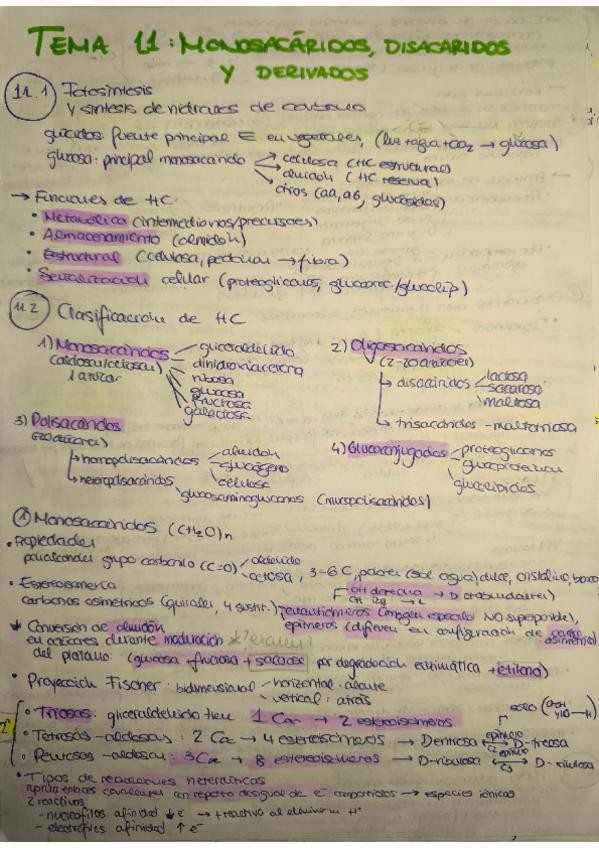 TEMA 11: MONOSACÁRIDOS, DISACARIDOS
Y DERIVADOS
11.1 Fotosíntesis
y síntesis de hidratos de carbono
glúcidos: fuente principal E en vegetales, (luz + agua + CO2 → glucosa)
glucosa: principal monosacárido → celulosa (HC estructural)
→ almidón (HC reserva)
→ otros (aa, aG, glucósidos)
→ Funciones de HC:
• Metabólica (intermediarios/precursores)
• Almacenamiento (almidón)
• Estructural (celulosa, pectinas → fibra)
• Señalización celular (proteoglicanos, glucoprot/glucolip)
11.2 Clasificación de HC
1) Monosacáridos
(aldosas/cetosas)
1 azúcar
gliceraldehído
dihidroxiacetona
ribosa
glucosa
fructosa
galactosa
2) Oligosacáridos
(2-20 azúcares)
↳ disacáridos
lactosa
sacarosa
maltosa
↳ trisacáridos - maltotriosa
3) Polisacáridos
↳ homopolisacáridos
almidón
glucógeno
celulosa
↳ heteropolisacáridos
glucosaminoglucanos (mucopolisacáridos)
4) Glucoconjugados
proteoglicanos
glucoproteínas
glucolípidos
① Monosacáridos (CH2O)n
• Propiedades
polialcoholes grupo carbonilo (C=O)
aldehído
cetosa, 3-6 C, polares (sol. agua) dulce, cristalino, blanco
• Estereoisomería
OH derecha → D
OH izq → L
carbonos asimétricos (quirales, 4 sustit.) enantiómeros (imagen especular NO superponible),
epímeros (difieren en configuración de carbono asimétrico)
* Conversión de almidón
en azúcares durante maduración
del plátano (glucosa + fructosa + sacarosa por degradación enzimática + etileno)
• Proyección Fischer: bidimensional
horizontal: adelante
vertical: atrás
• Triosas: gliceraldehído tiene 1 Car → 2 estereoisómeros
• Tetrosas-aldosas: 2 Ca → 4 estereoisómeros → D-eritrosa epímero C2 D-treosa
• Pentosas-aldosas: 3 Ca → 8 estereoisómeros → D-ribulosa epímero C3 D-xilulosa
• Tipos de reacciones heterolíticas
ruptura enlaces covalentes en reparto desigual de e⁻ compartidos → especies iónicas
2 reactivos
- nucleófilos afinidad ↓ e⁻ → + reactivo al eliminar H⁺
- electrófilos afinidad ↑ e⁻